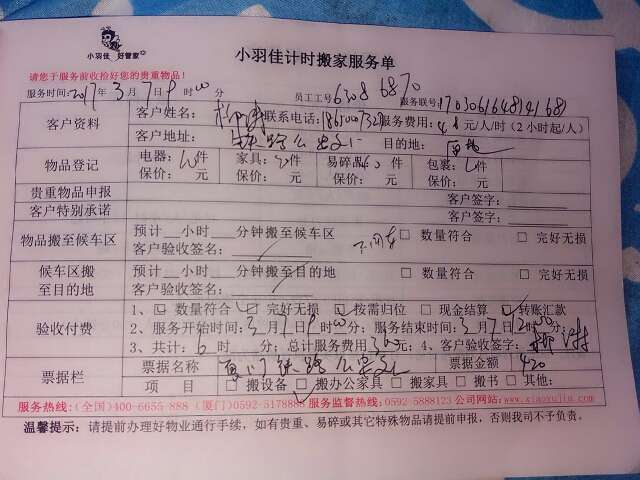 小羽佳 好管家
小羽佳计时搬家服务单
请您于服务前收捡好您的贵重物品!
服务时间:2017年3月7日9时00分 员工工号6308 6870 服务联号:
客户资料 客户姓名: 联系电话: 服务费用:48元/人/时(2小时起/人)
客户地址: 目的地:
物品登记 电器: 件 家具: 件 易碎品: 件 包装: 件
保价: 元 保价: 元 保价: 元 保价: 元
贵重物品申报 客户签字:
客户特别承诺 客户签字:
物品搬至候车区 预计 小时 分钟搬至候车区 □ 数量符合 □ 完好无损
客户验收签名:
候车区搬至目的地 预计 小时 分钟搬至目的地 □ 数量符合 □ 完好无损
客户验收签名:
验收付费 1、□ 数量符合 □ 完好无损 □ 按需归位 □ 现金结算 □ 转账汇款
2、服务开始时间:3月7日9时00分;服务结束时间:3月7日12时00分;
3、共计:6时 分;总计服务费用 元;4、客户验收签字:
票据栏 票据名称 票据金额 420
项 目 □ 搬设备 □ 搬办公家具 □ 搬家具 □ 搬书 □ 其他:
服务热线:(全国)400-6655-888 (厦门)0592-5178888 服务监督热线:0592-5888123 公司网站:www.xiaoyujia.com
温馨提示:请提前办理好物业通行手续,如有贵重、易碎或其它特殊物品请提前申报,否则我司不予负责。